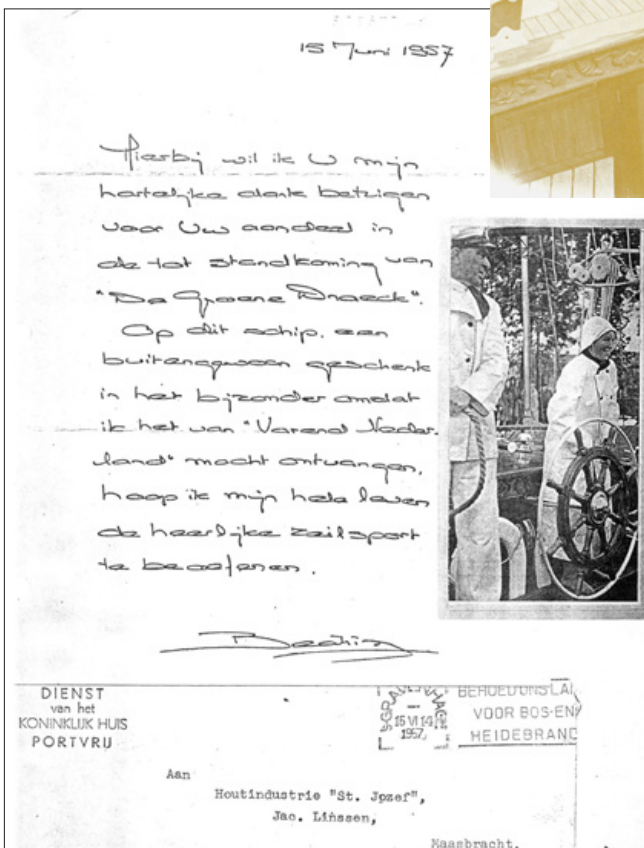 15 Juni 1957
Hierbij wil ik U mijn
hartelijke dank betuigen
voor Uw aandeel in
de tot standkoming van
"De Groene Draeck".
Op dit schip, een
buitengewoon geschenk
in het bijzonder omdat
ik het van "Varend Neder-
land" mocht ontvangen,
hoop ik mijn hele leven
de heerlijke zeilsport
te beoefenen.
Beatrix
DIENST
van het
KONINKLIJK HUIS
PORTVRIJ
15 VI 14
1957
BEHOED ONS LAN
VOOR BOS-EN
HEIDEBRAND
Aan
Houtindustrie "St. Jozef",
Jac. Linssen,
Maasbracht.